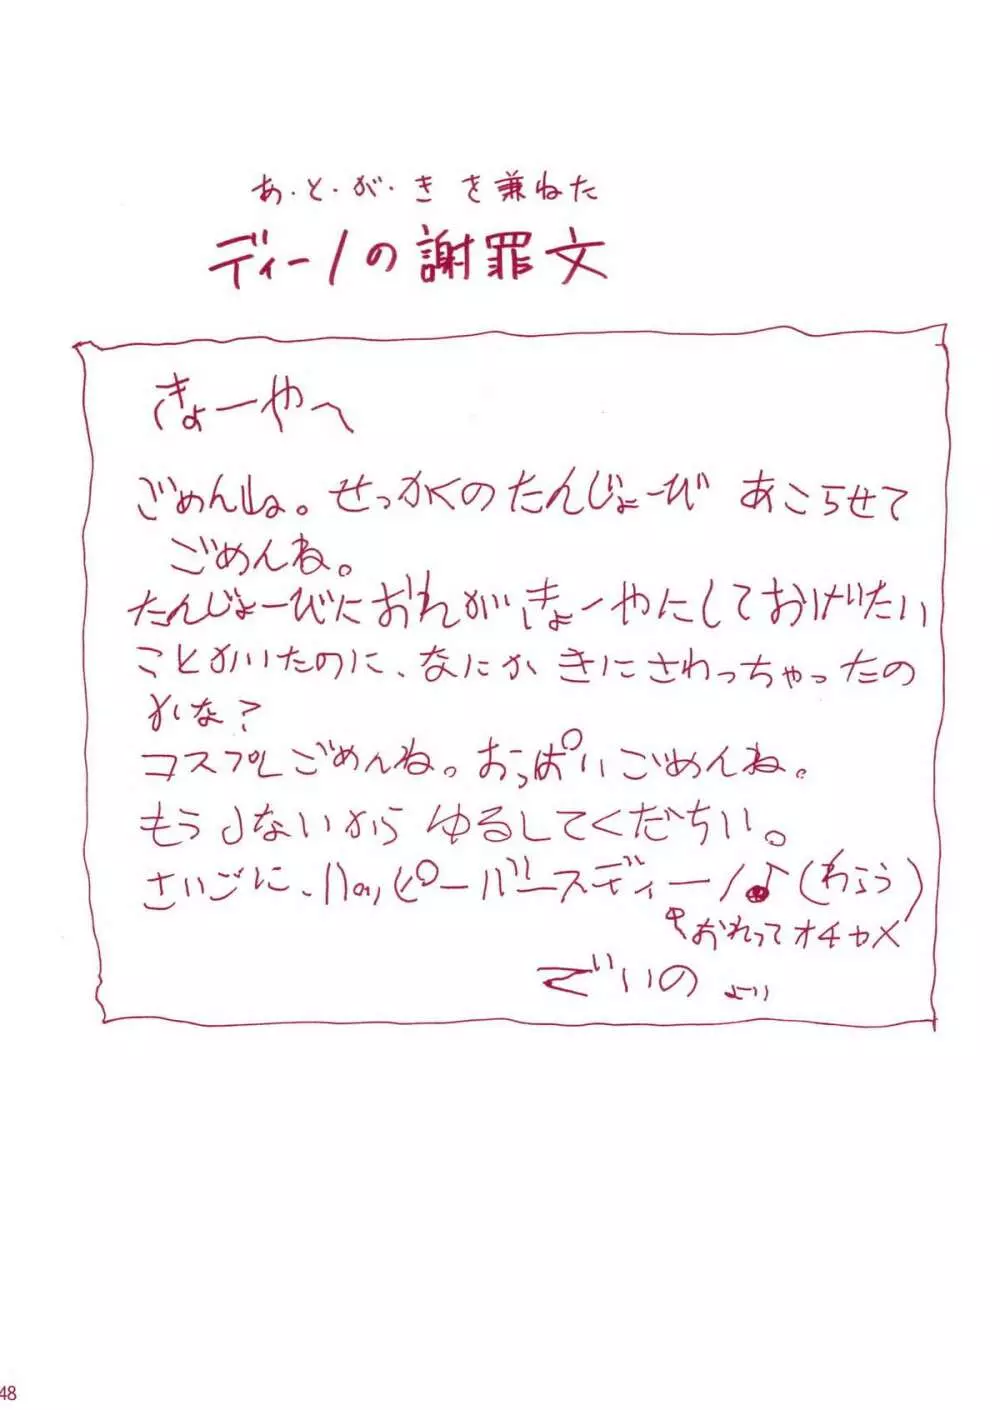 あ・と・が・きを兼ねた
ディーノの謝罪文
きょーやへ
ごめんね。せっかくのたんじょーび あこらせて
ごめんね。
たんじょーびにおれがきょーやにしておげたい
ことかいたのに、なにか きにさわっちゃったの
かな?
コスプレごめんね。おっぱいごめんね。
もうしないから ゆるしてくだちい。
さいごに、ハッピーバースディーノ♪(わらう)
おれってオチャメ
でぃいの より
48